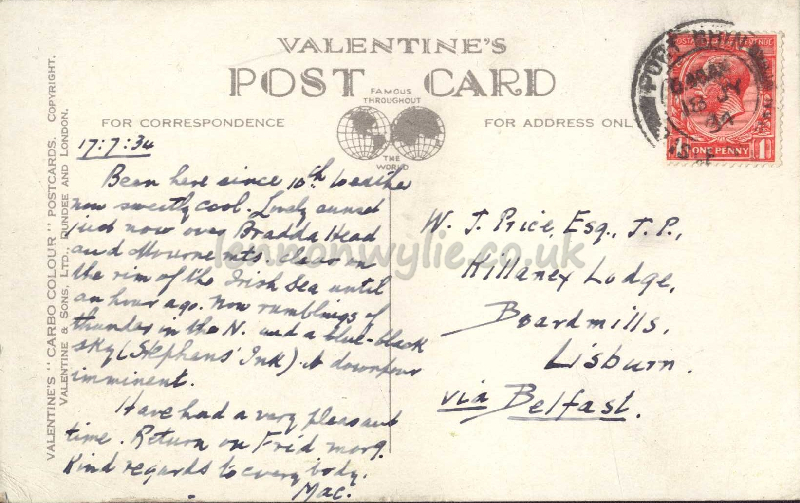 VALENTINE'S
POST CARD
FAMOUS
THROUGHOUT
THE
WORLD
FOR CORRESPONDENCE
FOR ADDRESS ONL
VALENTINE'S "CARBO COLOUR" POSTCARDS. COPYRIGHT.
VALENTINE & SONS, LTD., DUNDEE AND LONDON.
17:7:34
Been here since 10th weather
now sweetly cool. Lovely sunset
just now over Bradda Head
and Mourne mts. clear on
the rim of the Irish Sea until
an hour ago. Now rumblings of
thunder in the N. and a blue-black
sky (Stephens' Ink). A downpour
imminent.
Have had a very pleasant
time. Return on Frid morng.
Kind regards to every body.
Mac.
W. J. Price, Esq., J.P.,
Killaney Lodge,
Boardmills,
Lisburn.
via Belfast.
PORT
18 JY
34
POSTAGE REVENUE
ONE PENNY 1
lennonwylie.co.uk